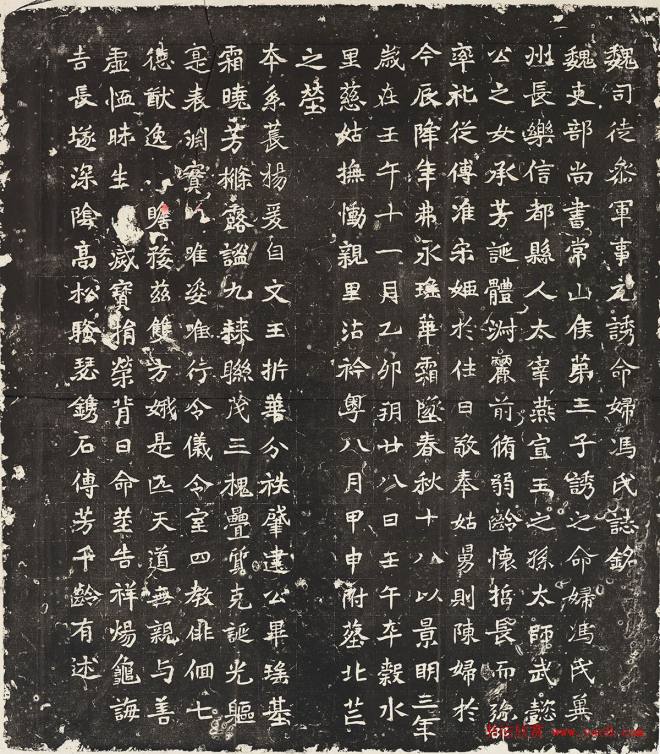 魏司徒參軍事元誘命婦馮氏誌銘
魏吏部尚書常山侯第三子誘之命婦馮氏冀
州長樂信都縣人太宰燕宣王之孫太師武懿
公之女承芳誕體淵麗前脩弱齡懷哲長而彌
率礼從傅准宋姬於往日敬奉姑舅則陳婦於
今辰降年弗永瑤華霜墜春秋十八以景明三年
歲在壬午十一月乙卯朔廿八日壬午卒穀水
里慈姑撫慟親里沾衿粵八月甲申附葬北芒
之塋
本系萇楊爰自文王折華分袟肇建公畢瑤基
霜曉芳櫞露謐九棘聯茂三槐疊質克誕光軀
寔表淵實 唯姿唯行令儀令室四教俳佪七
德猷逸 瞻後茲雙方娥是匹天道無親與善
虛恤昧生 歲寶捐榮背日命筮告祥煬龜誨
吉長墜深陰高松騷瑟鐫石傳芳千齡有述